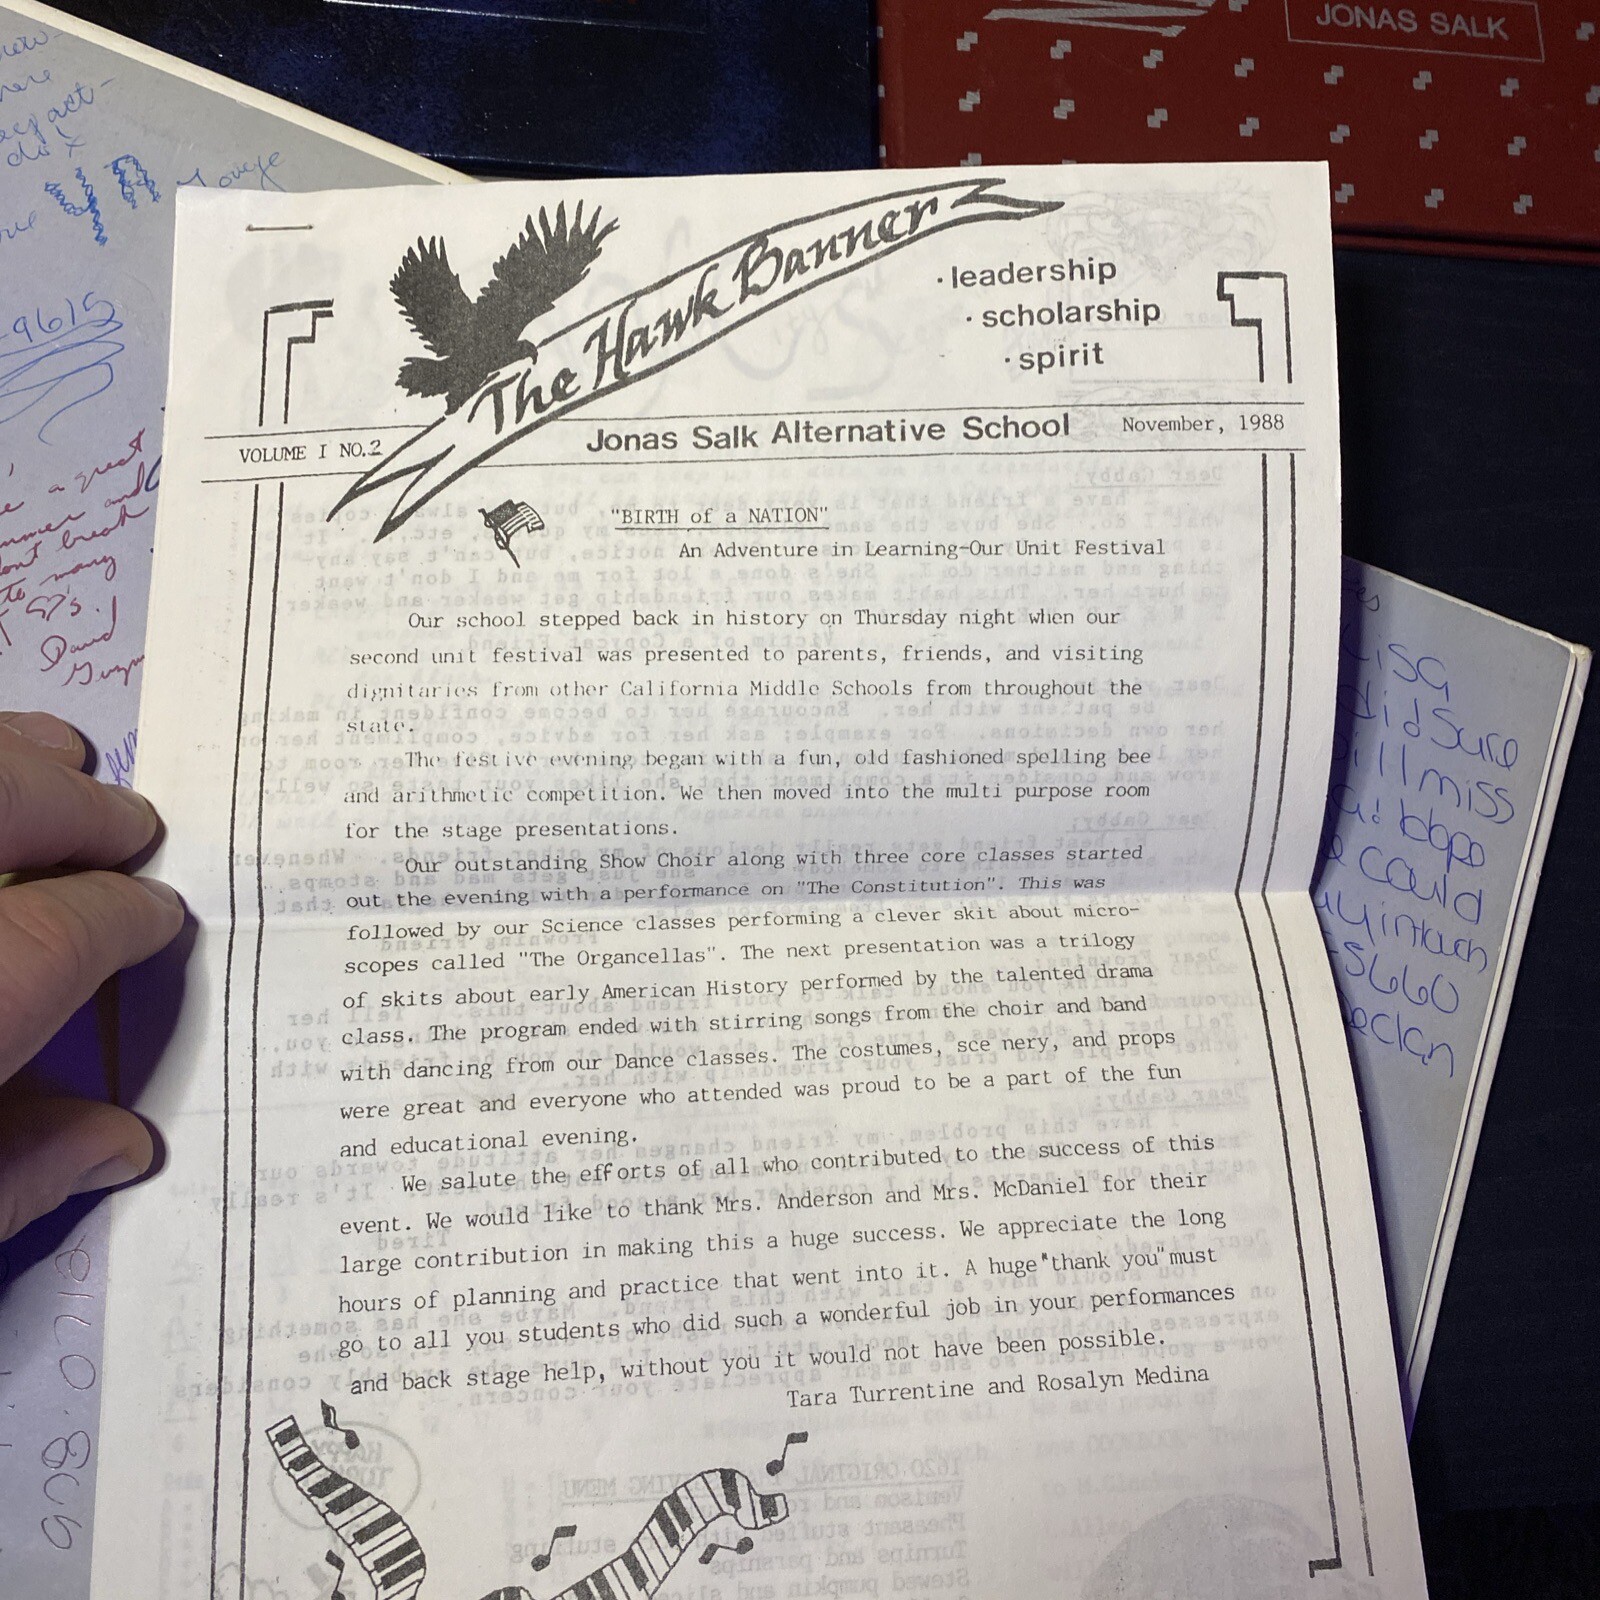 JONAS SALK
The Hawk Banner
· leadership
· scholarship
· spirit
VOLUME I NO.2
Jonas Salk Alternative School
November, 1988
"BIRTH of a NATION"
An Adventure in Learning-Our Unit Festival
Our school stepped back in history on Thursday night when our
second unit festival was presented to parents, friends, and visiting
dignitaries from other California Middle Schools from throughout the
state.
The festive evening began with a fun, old fashioned spelling bee
and arithmetic competition. We then moved into the multi purpose room
for the stage presentations.
Our outstanding Show Choir along with three core classes started
out the evening with a performance on "The Constitution". This was
followed by our Science classes performing a clever skit about micro-
scopes called "The Organcellas". The next presentation was a trilogy
of skits about early American History performed by the talented drama
class. The program ended with stirring songs from the choir and band
with dancing from our Dance classes. The costumes, sce nery, and props
were great and everyone who attended was proud to be a part of the fun
and educational evening.
We salute the efforts of all who contributed to the success of this
event. We would like to thank Mrs. Anderson and Mrs. McDaniel for their
large contribution in making this a huge success. We appreciate the long
hours of planning and practice that went into it. A huge "thank you" must
go to all you students who did such a wonderful job in your performances
and back stage help, without you it would not have been possible.
Tara Turrentine and Rosalyn Medina
-9615
a great
and
break
to many
David
miss
could
5660